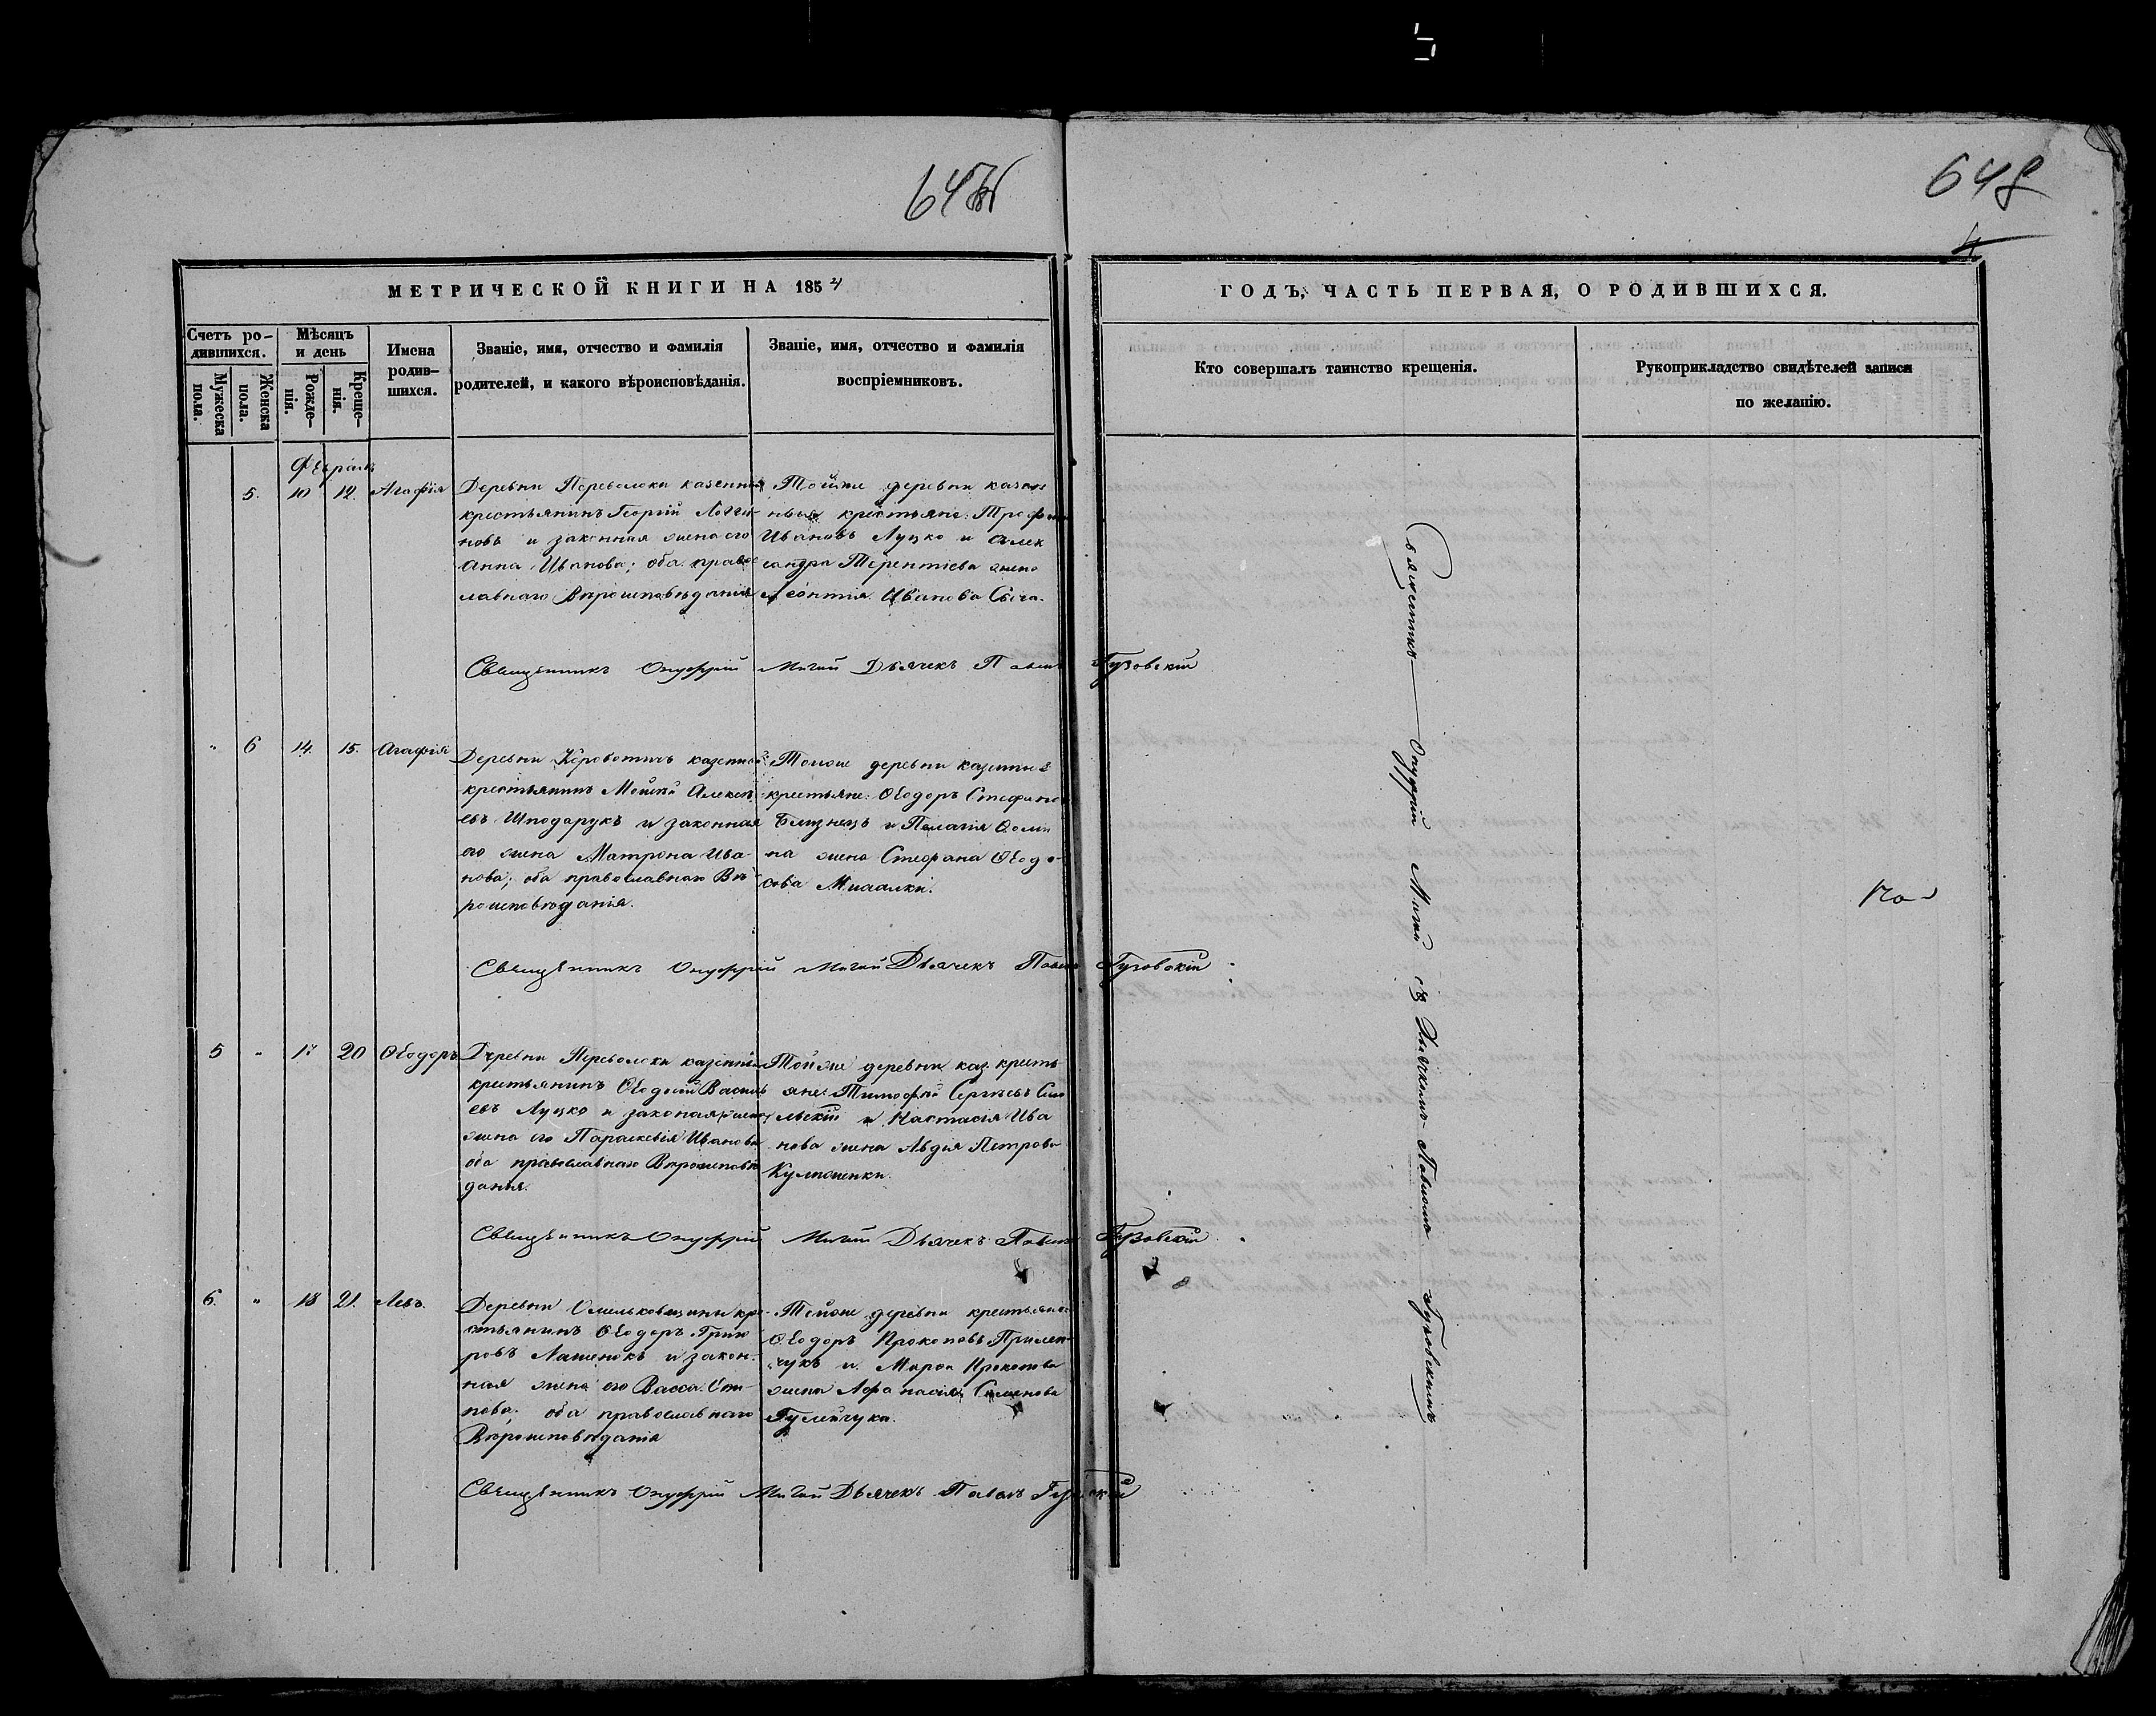 648
МЕТРИЧЕСКОЙ КНИГИ НА 1854
ГОДЪ, ЧАСТЬ ПЕРВАЯ, О РОДИВШИХСЯ.
Счетъ ро-
дившихся.
Мужеска
пола.
Женска
пола.
Мѣсяцъ
и день
Рожде-
нія.
Креще-
нія.
Имена
родив-
шихся.
Званіе, имя, отчество и фамилія
родителей, и какого вѣроисповѣданія.
Званіе, имя, отчество и фамилія
воспріемниковъ.
Кто совершалъ таинство крещенія.
Рукоприкладство свидѣтелей записи
по желанію.
Февраль
5. 10 12. Агафія
Деревни Переволоки казенный
крестьянинъ Георгій Логи-
новъ и законная жена его
Анна Иванова; оба правос
лавнаго Вѣроисповѣданія
Тойже деревни казен
ные крестьяне: Трофимъ
Ивановъ Луцко и Алек
сандра Терентіева жена
Леонтія Иванова
Священникъ Онуфрій Мигай Дьячекъ Павелъ Гузовскій
" 6 14. 15. Агафія
Деревни казенный
крестьянинъ Алексѣ-
евъ Шподарукъ и законная
его жена Матрона Ива-
нова; оба православнаго Вѣ-
роисповѣданія.
Тойже деревни казенные
крестьяне: Ѳеодоръ Стефановъ
Близнецъ и Пелагія Ѳоми
на жена Стефана Ѳеодо-
рова
Священникъ Онуфрій Мигай Дьячекъ Павелъ Гузовскій
5 " 17 20 Ѳеодоръ
Деревни Переволоки казенный
крестьянинъ Ѳеодосій Василь
евъ Луцко и законая
жена его Параскевія Иванова
оба православнаго Вѣроисповѣ
данія.
Тойже деревни каз. кресть
яне: Тимофей Сергѣевъ
и Настасія Ива
нова жена Авдія Петрова
Священникъ Онуфрій Мигай Дьячекъ Павелъ Гузовскій
6. " 18 21. Левъ.
Деревни Омельковщины кре-
стьянинъ Ѳеодоръ Григо
ровъ и закон-
ная жена его Васса
нова; оба православнаго
Вѣроисповѣданія
Тойже деревни крестьяне
Ѳеодоръ Прокоповъ
и Марѳа Прокопова
жена Афанасія Семенова
Гулейчука.
Священникъ Онуфрій Мигай Дьячекъ Павелъ Гузовскій
Священникъ Онуфрій Мигай съ Дьячкомъ Павломъ Гузовскимъ